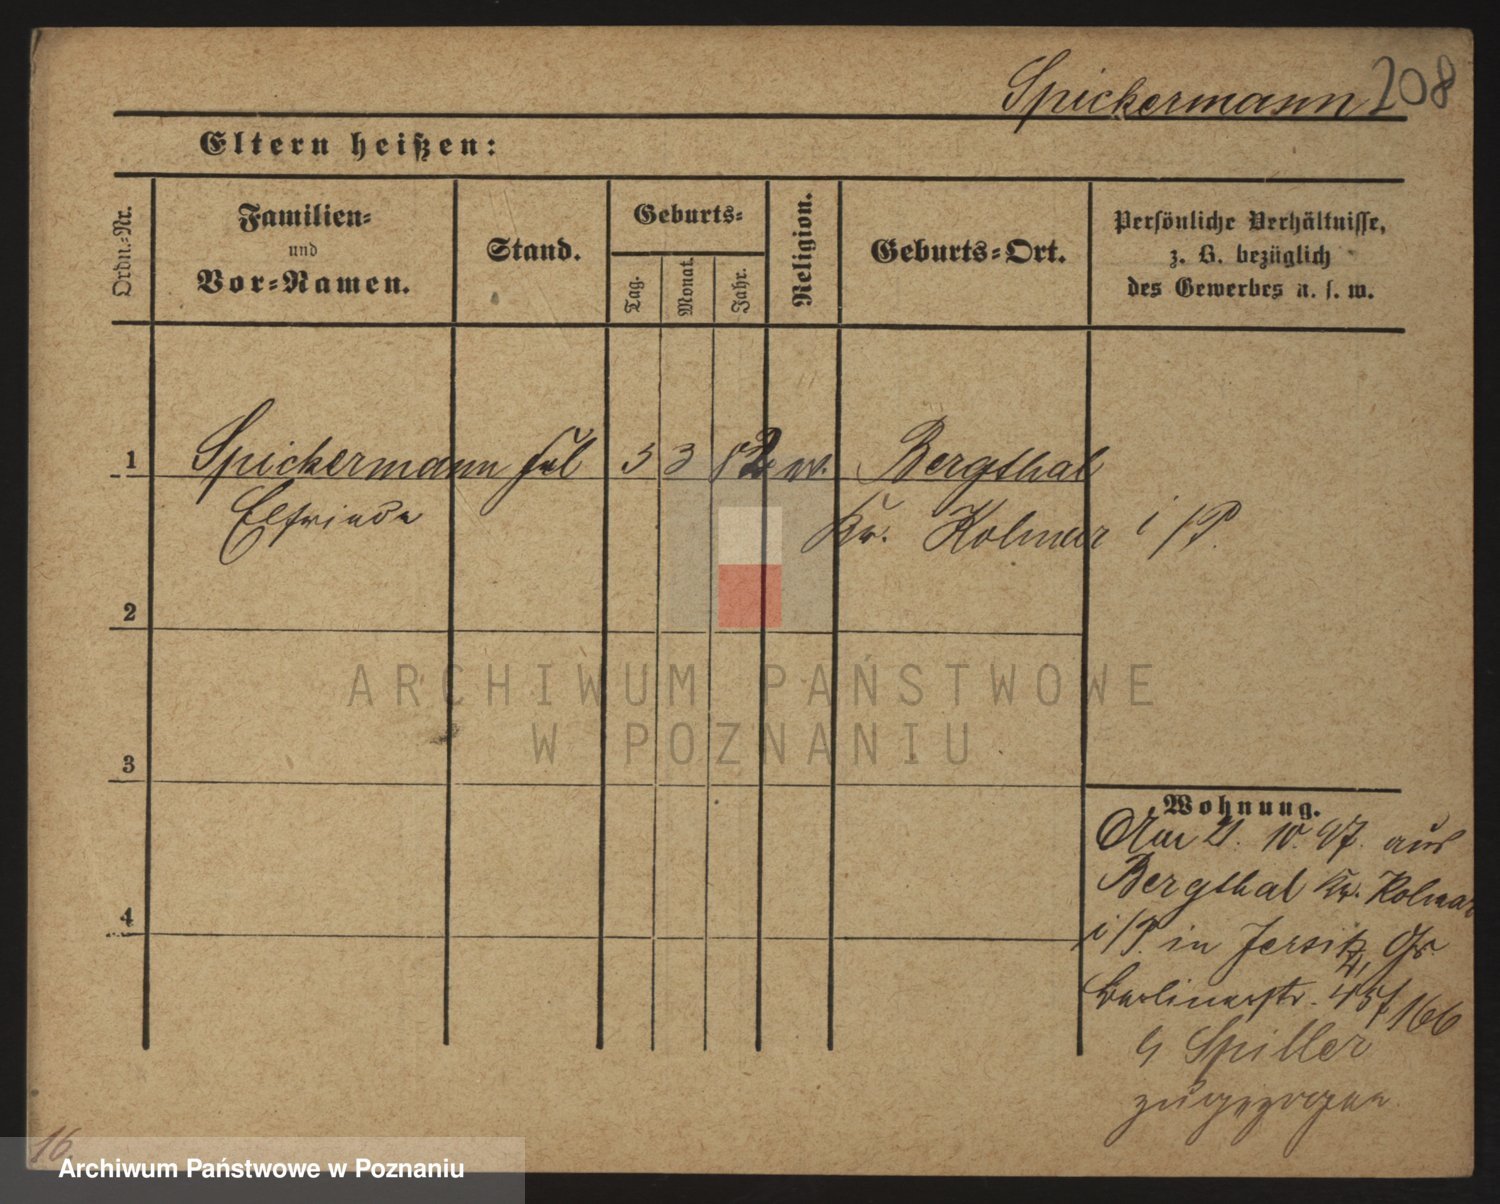 Spickermann 208
Eltern heißen:
Ordn.-Nr.
Familien-
und
Vor-Namen.
Stand.
Geburts-
Tag.
Monat.
Jahr.
Religion.
Geburts-Ort.
Persönliche Verhältnisse,
z. B. bezüglich
des Gewerbes u. s. w.
1 Spickermann 3 82 ev. Bergthal
Elfriede Kr. Kolmar i/P.
2
3
4
Wohnung.
Am 21. 10. 97. aus
Bergthal Kr. Kolmar
i/P. in Jersitz, Gr.
Berlinerstr. 166
Spiller
zugezogen
16
ARCHIWUM PAŃSTWOWE
W POZNANIU
Archiwum Państwowe w Poznaniu